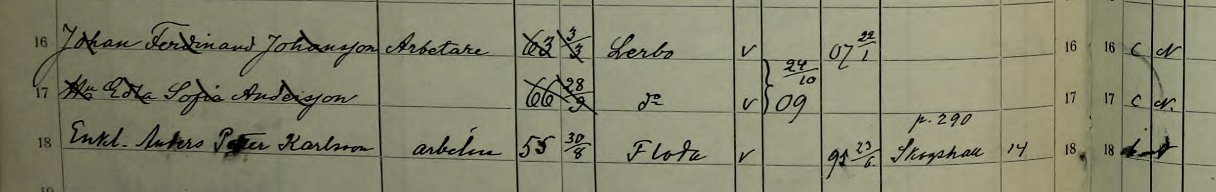 16 Johan Ferdinand Johansson Arbetare 63 3/3 Lerbo v 07 22/1 16 16 C N
17 Hu Edla Sofia Andersson 66 28/9 do v } 24/10 09 17 17 C N.
p. 290
18 Enkl. Anders Peter Karlsson 55 30/8 Floda v 95 23/6 Skogshall 14 18 18